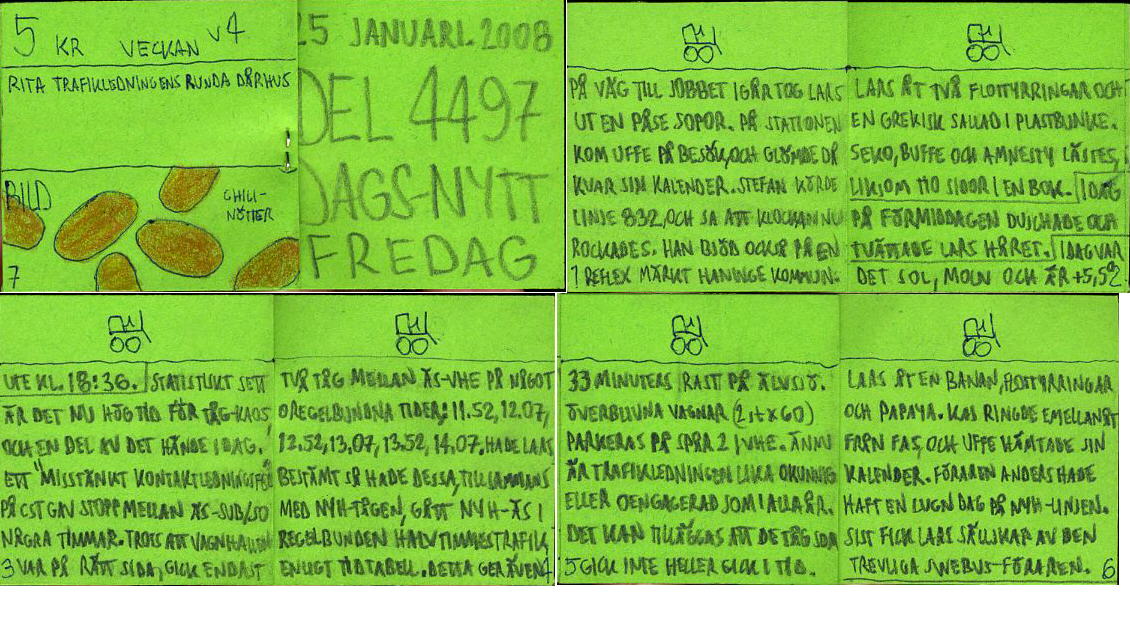 5 KR VECKAN V4
RITA TRAFIKLEDNINGENS RUNDA DÅRHUS
BILD
CHILI-
NÖTTER
7
25 JANUARI. 2008
DEL 4497
DAGS-NYTT
FREDAG
PÅ VÄG TILL JOBBET IGÅR TOG LARS
UT EN PÅSE SOPOR. PÅ STATIONEN
KOM UFFE PÅ BESÖK, OCH GLÖMDE DÅ
KVAR SIN KALENDER. STEFAN KÖRDE
LINJE 832, OCH SA ATT KLOCKAN NU
ROCKADES. HAN BJÖD OCKSÅ PÅ EN
1 REFLEX MÄRKT HANINGE KOMMUN.
LARS ÅT TVÅ FLOTTYRRINGAR OCH
EN GREKISK SALLAD I PLASTBUNKE.
SEKO, BUFFE OCH AMNESTY LÄSTES,
LIKSOM 110 SIDOR I EN BOK. IDAG
PÅ FÖRMIDDAGEN DUSCHADE OCH
TVÄTTADE LARS HÅRET. IDAG VAR
DET SOL, MOLN OCH ÄR +5,5° 2
UTE KL. 18:36. STATISTISKT SETT
ÄR DET NU HÖGTID FÖR TÅG-KAOS,
OCH EN DEL AV DET HÄNDE IDAG.
ETT "MISSTÄNKT KONTAKTLEDNINGSFEL"
PÅ CST GAV STOPP MELLAN ÄS-SUB/SO
NÅGRA TIMMAR. TROTS ATT VAGNHALLEN
3 VAR PÅ RÄTT SIDA, GICK ENDAST
TVÅ TÅG MELLAN ÄS-VHE PÅ NÅGOT
OREGELBUNDNA TIDER: 11.52, 12.07,
12.52, 13.07, 13.52, 14.07. HADE LARS
BESTÄMT SÅ HADE DESSA, TILLSAMMANS
MED NYH-TÅGEN, GÅTT NYH-ÄS I
REGELBUNDEN HALVTIMMESTRAFIK
ENLIGT TIDTABELL. DETTA GER ÄVEN 4
33 MINUTERS RAST PÅ ÄLVSJÖ.
ÖVERBLIVNA VAGNAR (2 st X60)
PARKERAS PÅ SPÅR 2 I VHE. ÄNNU
ÄR TRAFIKLEDNINGEN LIKA OKUNNIG
ELLER OENGAGERAD SOM I ALLA ÅR.
DET KAN TILLÄGGAS ATT DE TÅG SOM
5 GICK INTE HELLER GICK I TID.
LARS ÅT EN BANAN, FLOTTYRRINGAR
OCH PAPAYA. KAS RINGDE EMELLANÅT
FRÅN FAS, OCH UFFE HÄMTADE SIN
KALENDER. FÖRAREN ANDERS HADE
HAFT EN LUGN DAG PÅ NYH-LINJEN.
SIST FICK LARS SÄLLSKAP AV DEN
TREVLIGA SWEBUS-FÖRAREN. 6